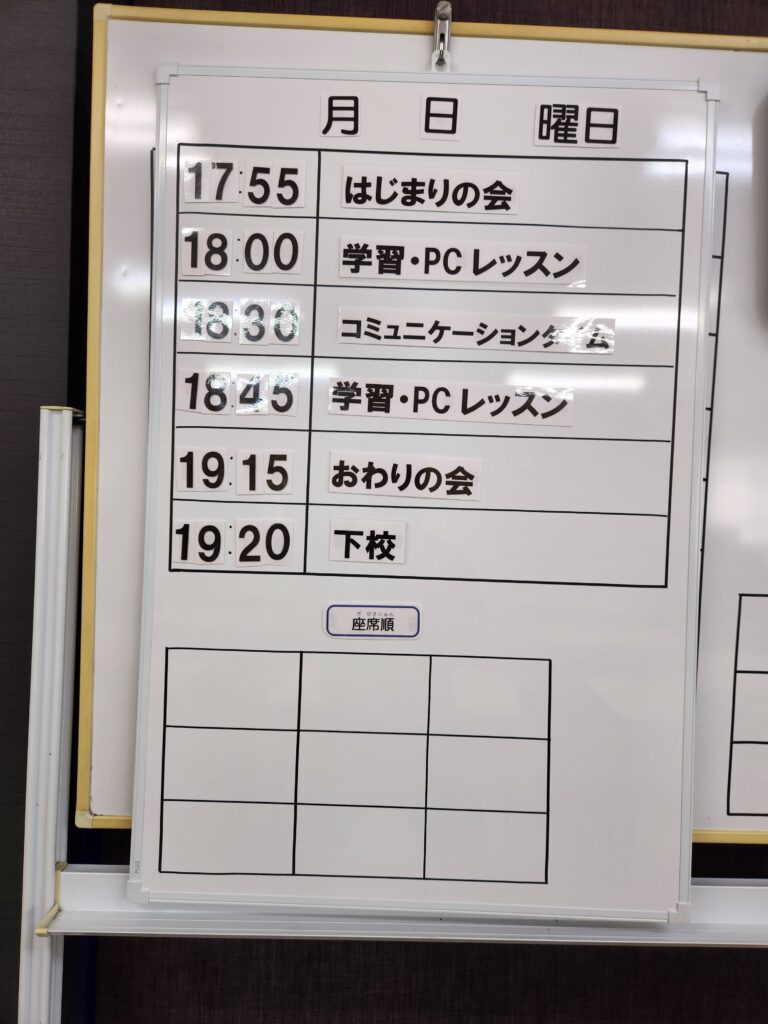 月 日 曜日
17:55 はじまりの会
18:00 学習・PCレッスン
18:30 コミュニケーションタイム
18:45 学習・PCレッスン
19:15 おわりの会
19:20 下校
ざせきじゅん
座席順
PLUS